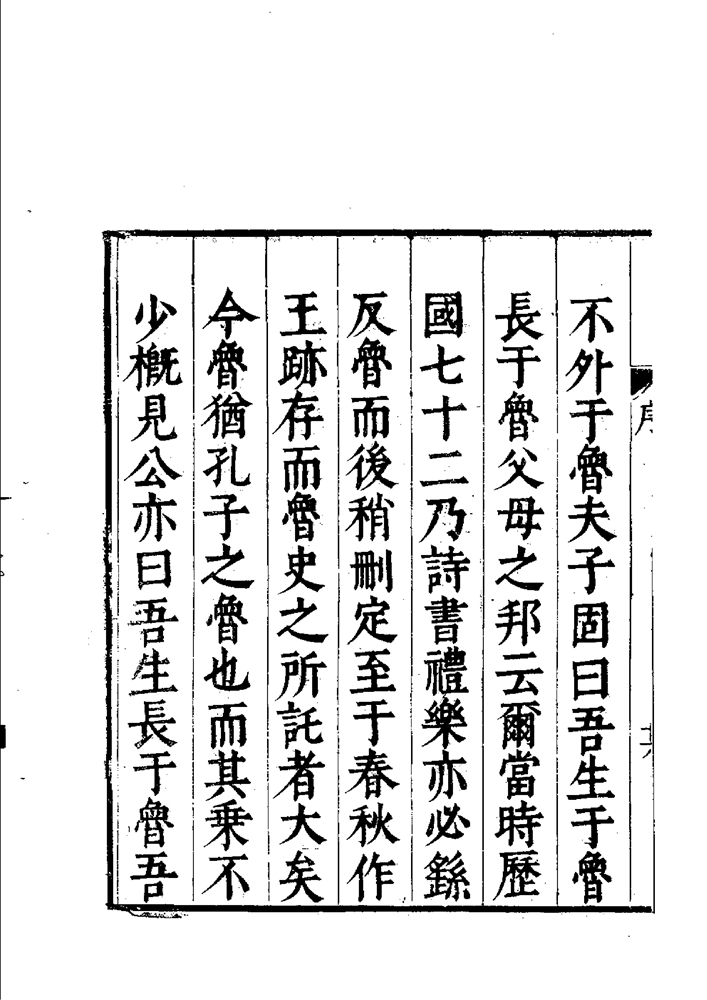 不外于魯夫子固曰吾生于魯
長于魯父母之邦云爾當時歷
國七十二乃詩書禮樂亦必繇
反魯而後稍刪定至于春秋作
王跡存而魯史之所託者大矣
今魯猶孔子之魯也而其乗不
少概見公亦曰吾生長于魯吾